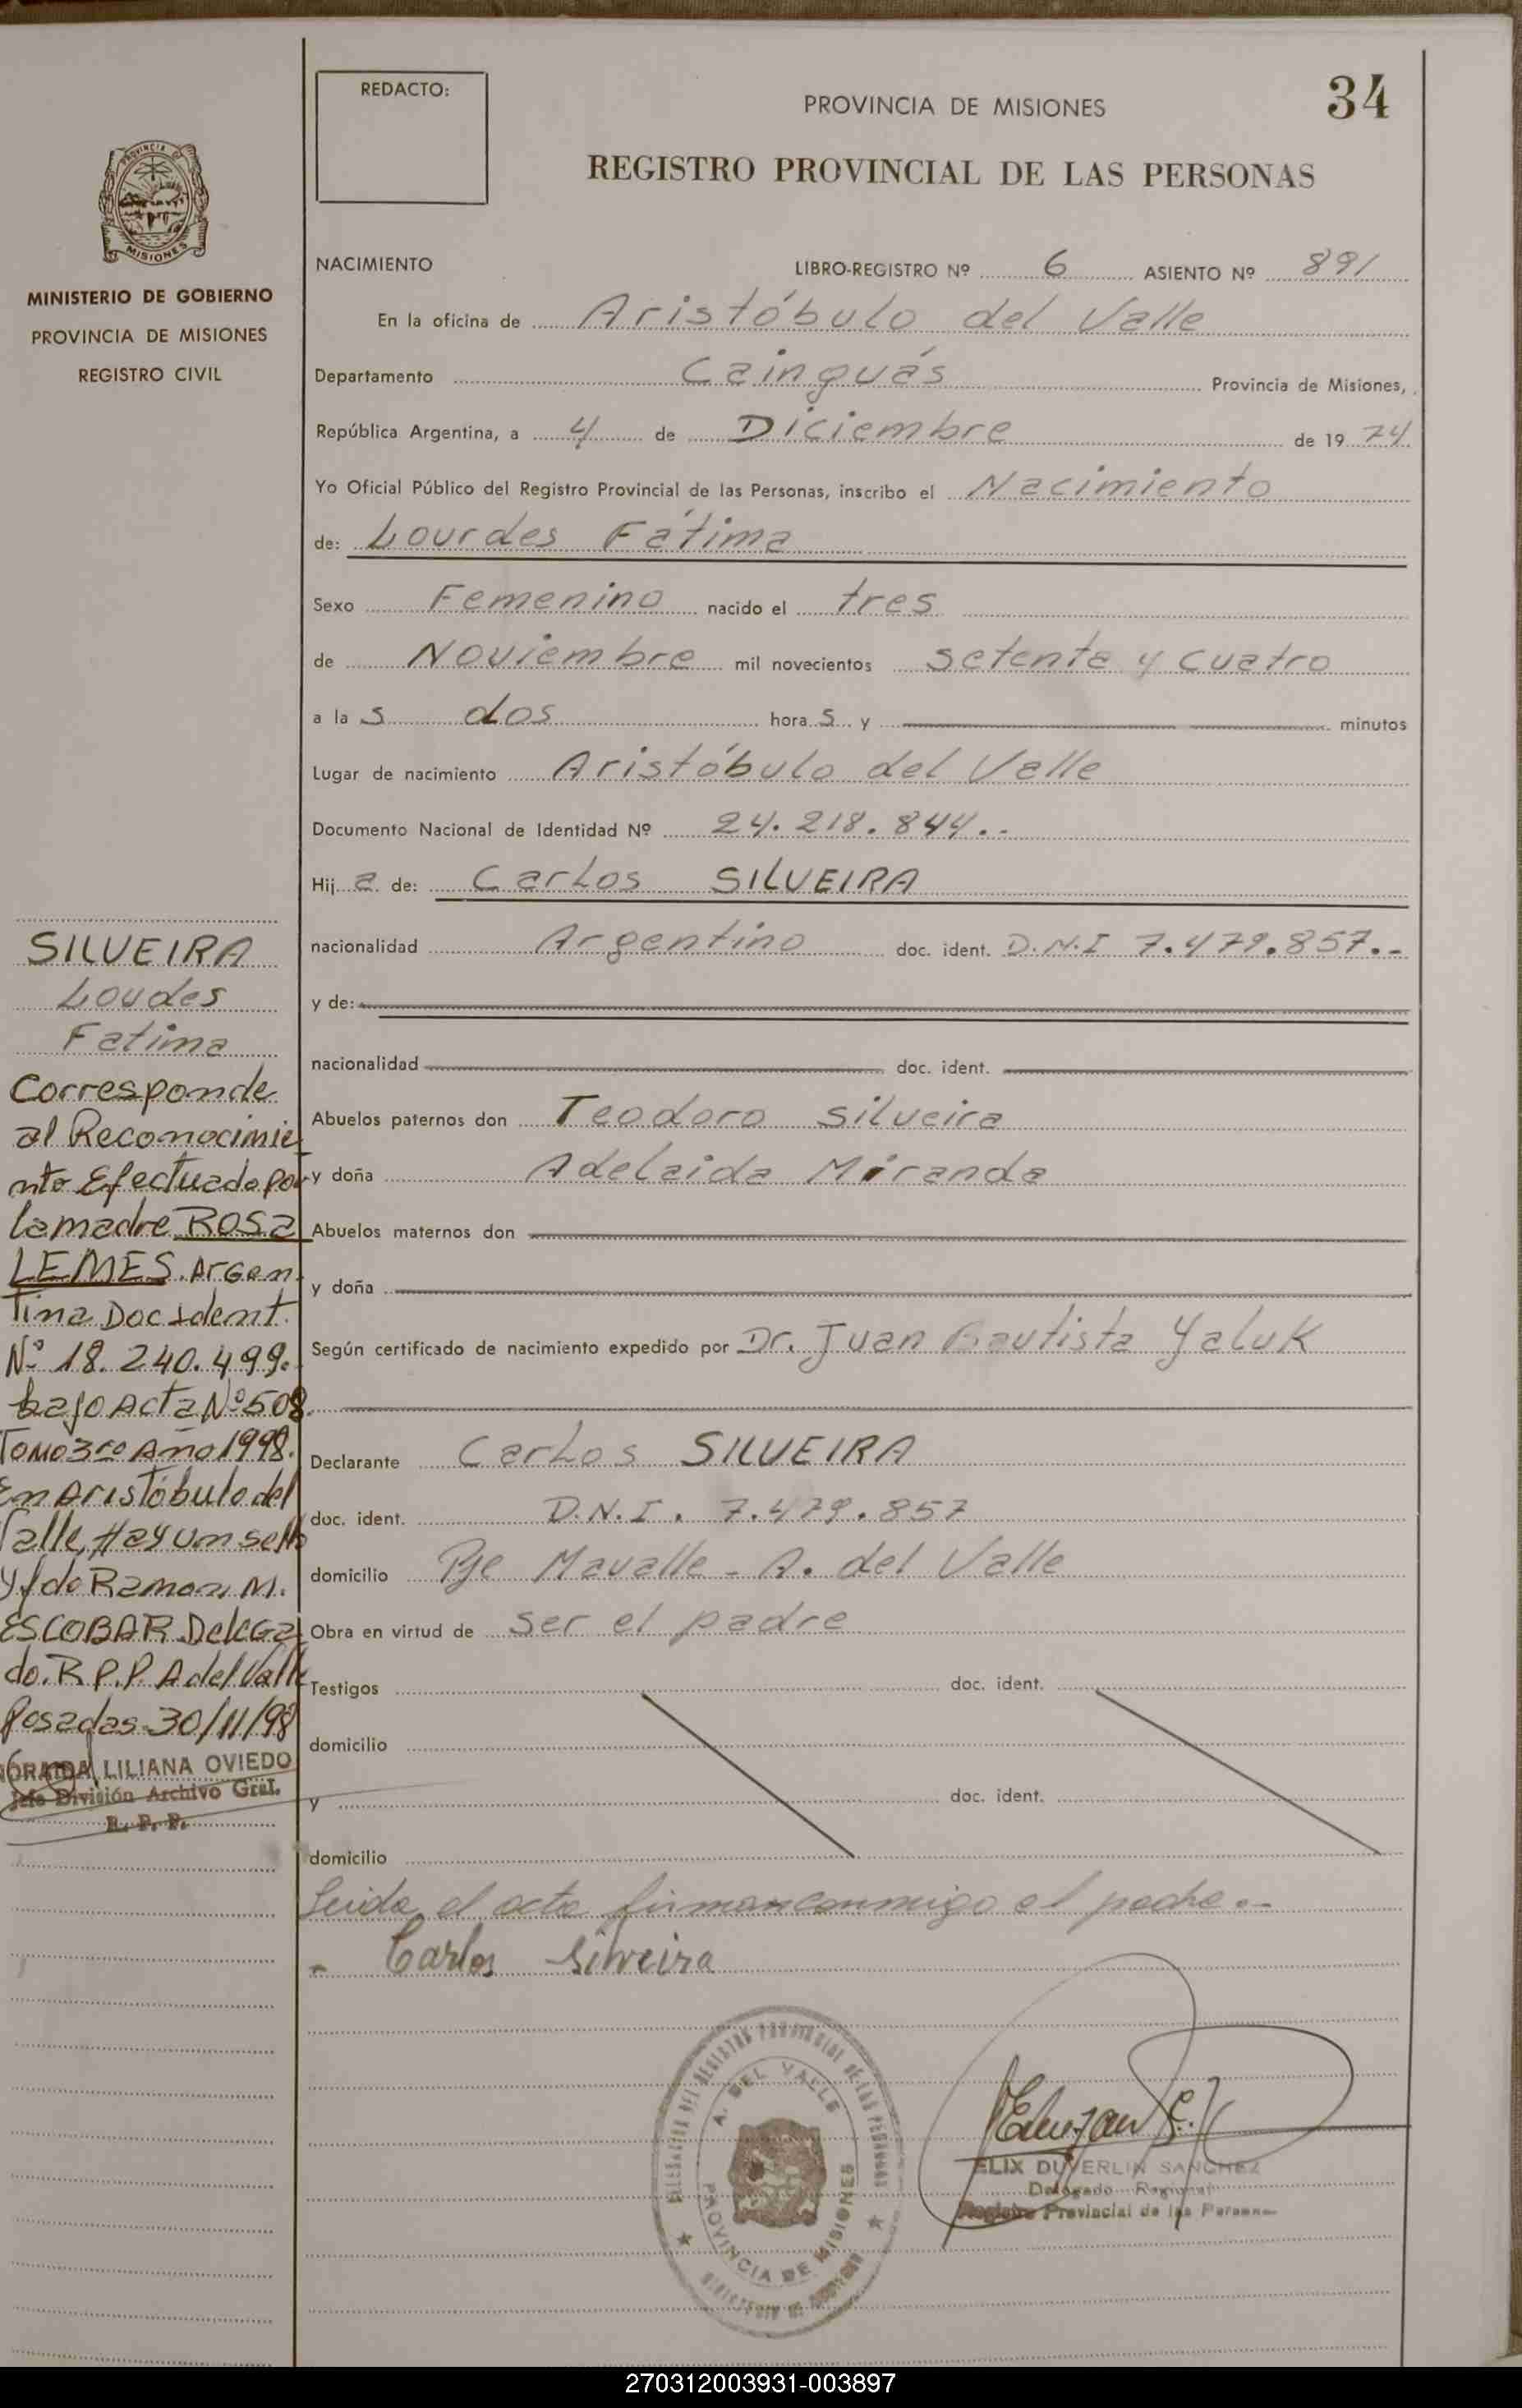 34
REDACTO:
PROVINCIA DE MISIONES
REGISTRO PROVINCIAL DE LAS PERSONAS
PROVINCIA DE
MISIONES
MINISTERIO DE GOBIERNO
PROVINCIA DE MISIONES
REGISTRO CIVIL
NACIMIENTO LIBRO-REGISTRO Nº 6 ASIENTO Nº 891
En la oficina de Aristóbulo del Valle
Departamento Cainguás Provincia de Misiones,
República Argentina, a 4 de Diciembre de 19 74
Yo Oficial Público del Registro Provincial de las Personas, inscribo el Nacimiento
de: Lourdes Fátima
Sexo Femenino nacido el tres
de Noviembre mil novecientos setenta y cuatro
a la s dos hora s y minutos
Lugar de nacimiento Aristóbulo del Valle
Documento Nacional de Identidad Nº 24.218.844.-
Hij a de: Carlos SILVEIRA
nacionalidad Argentino doc. ident. D.N.I 7.479.857.-
y de:
nacionalidad doc. ident.
Abuelos paternos don Teodoro Silveira
y doña Adelaida Miranda
Abuelos maternos don
y doña
Según certificado de nacimiento expedido por Dr. Juan Bautista Yaluk
Declarante Carlos SILVEIRA
doc. ident. D.N.I. 7.479.857
domicilio Pje Mavalle - A. del Valle
Obra en virtud de ser el padre
Testigos doc. ident.
domicilio
y doc. ident.
domicilio
Leida el acta firman conmigo el padre.-
- Carlos Silveira
SILVEIRA
Loudes
Fatima
Corresponde
al Reconocimie
nto Efectuado por
la madre ROSA
LEMES. Argen
tina Doc Ident.
Nº 18.240.499.
bajo Acta Nº 508.
Tomo 3ro Año 1998.
En Aristóbulo del
Valle, Hay un sello
y fdo Ramon M.
ESCOBAR Delega
do. R.P.P. A del Valle
Posadas 30/11/98
LILIANA OVIEDO
Jefe División Archivo Gral.
R. P. P.
DELEGACION DEL REGISTRO PROVINCIAL DE LAS PERSONAS
A. DEL VALLE
PROVINCIA DE MISIONES
FELIX DUVERLIN SANCHEZ
Delegado Regional
Registro Provincial de las Personas
270312003931-003897